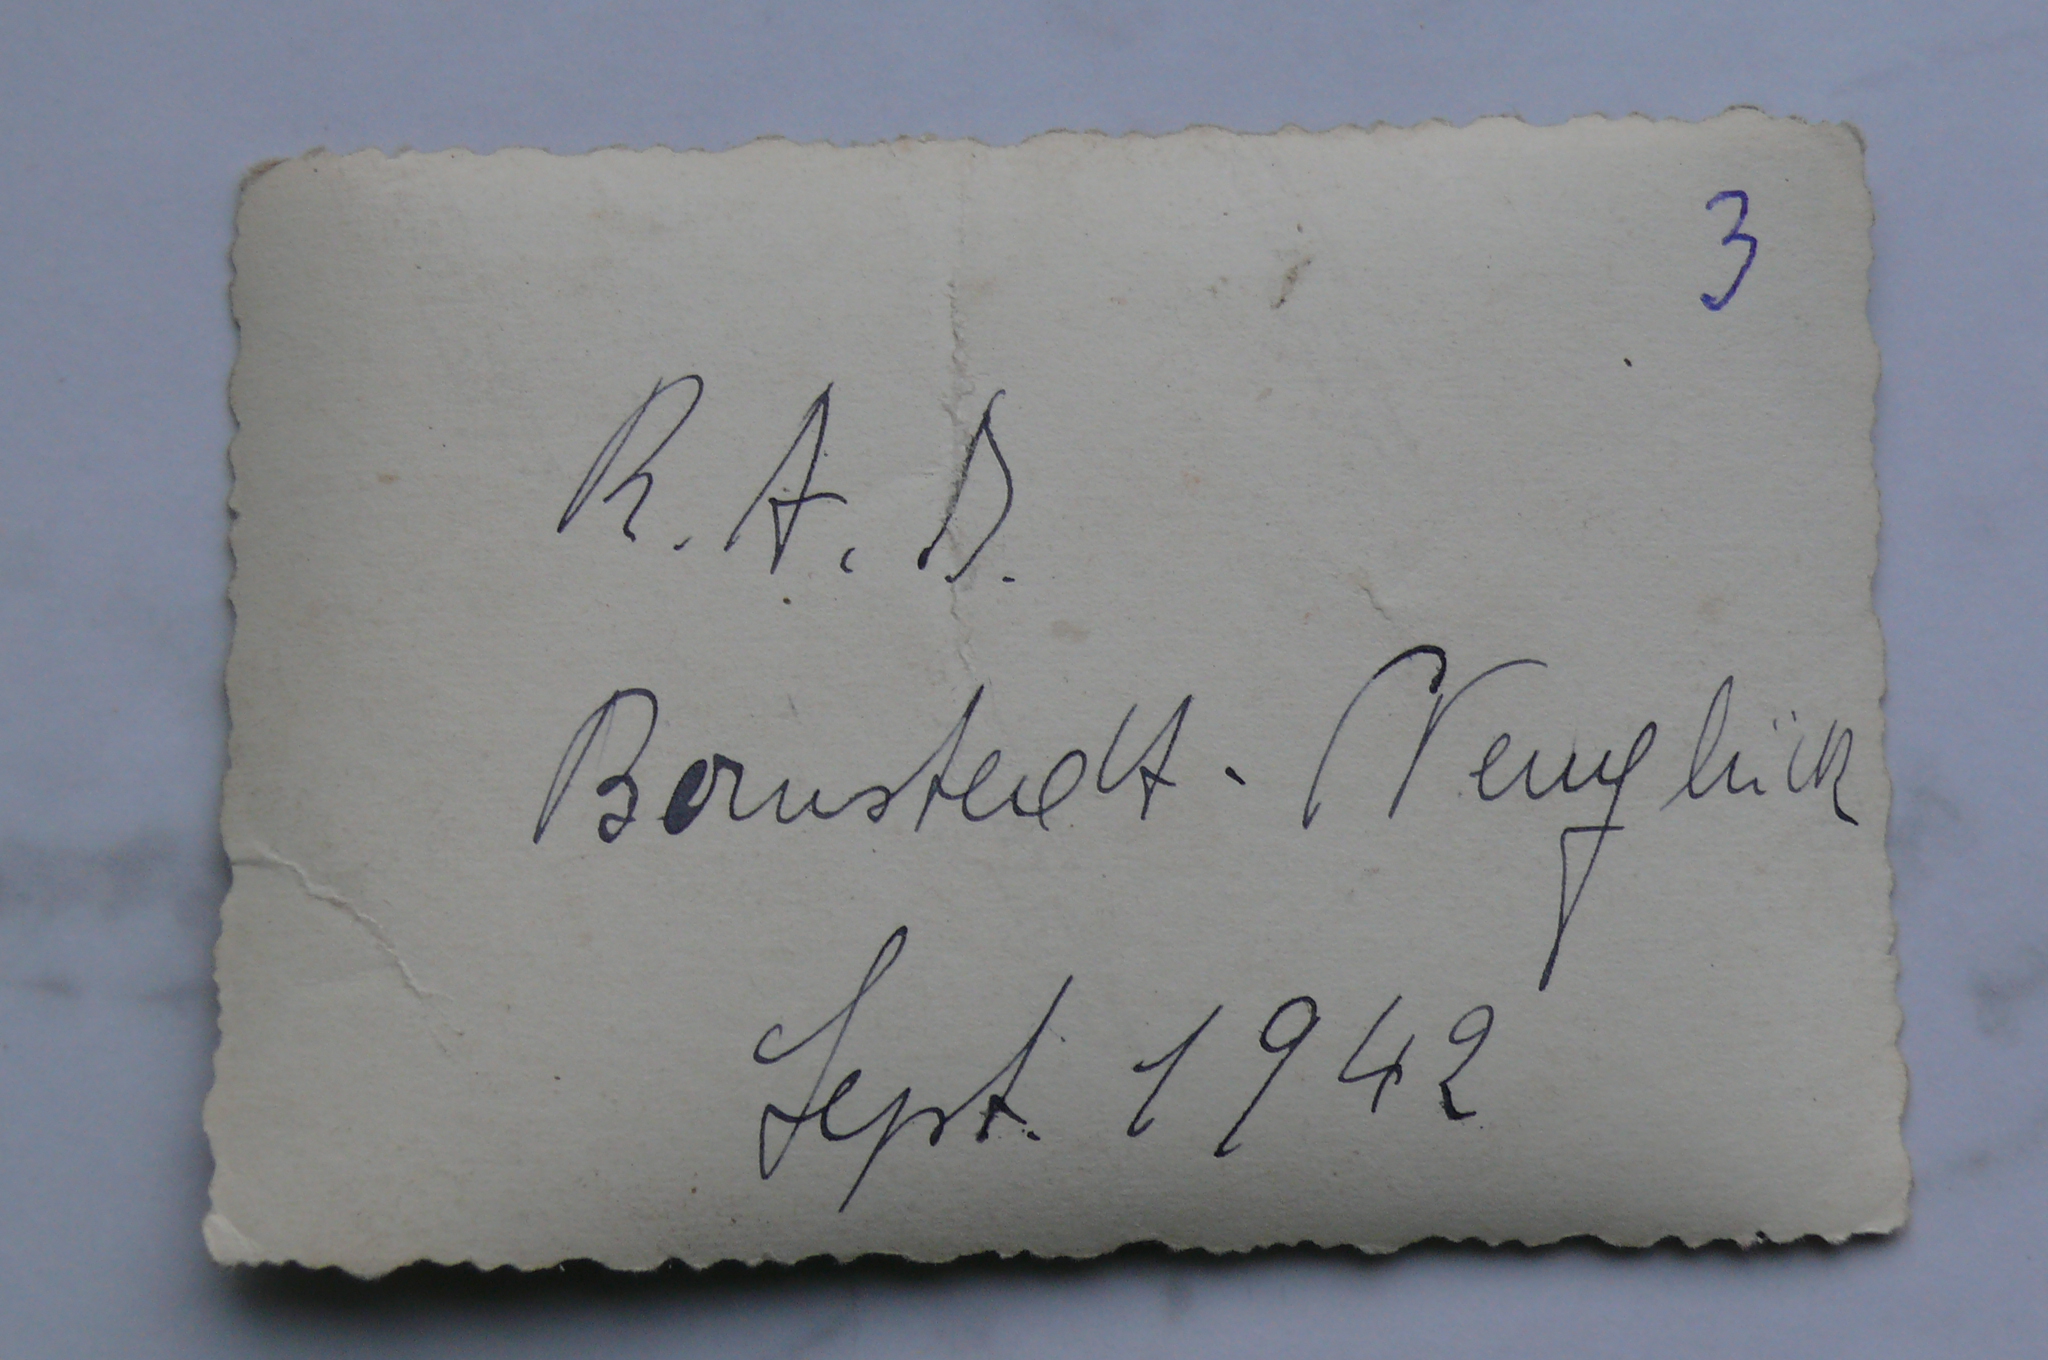 3
R.A.D.
Bornstedt-Neuglück
Sept. 1942